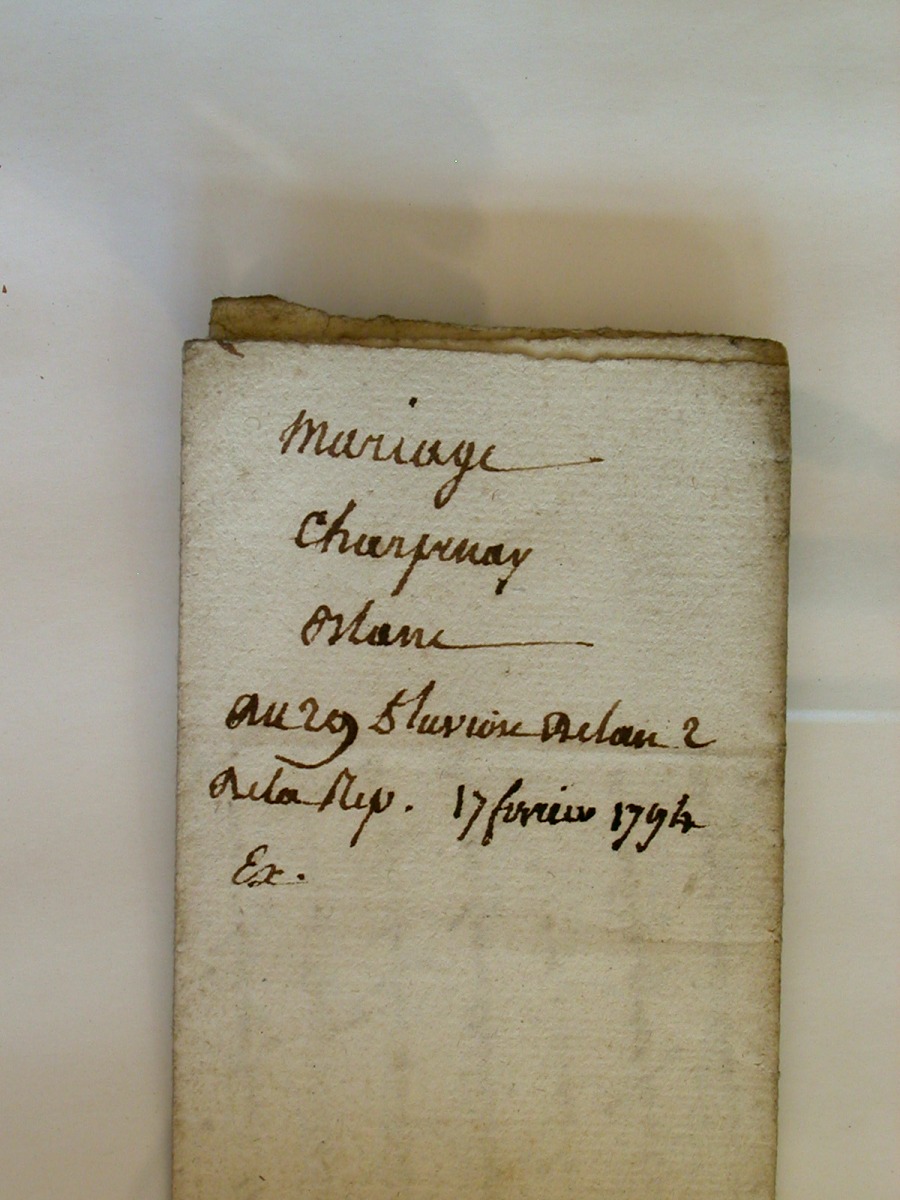 Mariage
Charpenay
Blanc
Du 29 Pluviose de lan 2
de la Rep. 17 fevrier 1794
Ex.